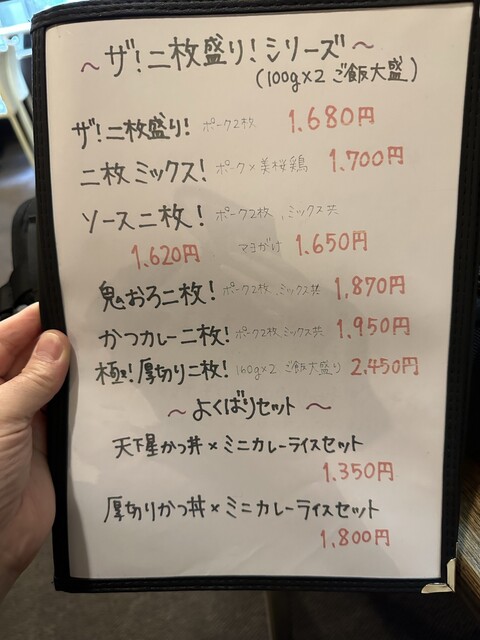 ～ ザ!二枚盛り!シリーズ ～
(100g×2 ご飯大盛)
ザ!二枚盛り! ポーク2枚 1.680円
二枚ミックス! ポーク×美桜鶏 1.700円
ソース二枚! ポーク2枚、ミックス共
1.620円 マヨがけ 1.650円
鬼おろ二枚! ポーク2枚、ミックス共 1.870円
かつカレー二枚! ポーク2枚、ミックス共 1.950円
極!厚切り二枚! 160g×2 ご飯大盛り 2.450円
～ よくばりセット ～
天下星かつ丼×ミニカレーライスセット
1.350円
厚切りかつ丼×ミニカレーライスセット
1.800円